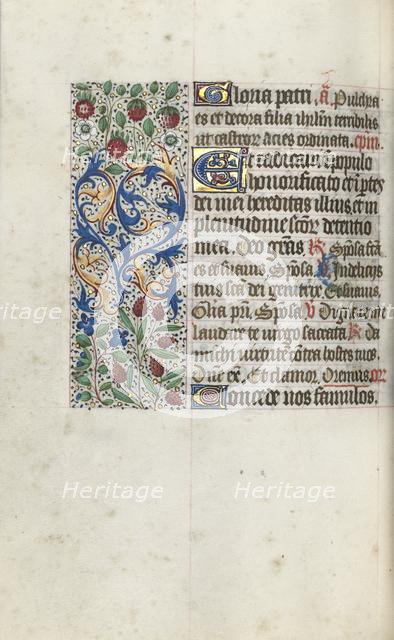 Gloria patri. a. Pulchra
es et decora filia ihrlm terribilis
ut castrorum acies ordinata. cpm.
Et radicaui in populo
honorificato et in ptes
dei mei hereditas illius et in
plenitudine scōr detentio
mea. Deo grās R Speciosa fca
es et suauis Speciosa V In delicijs
tuis scā dei genitrix Et suauis
Gloria pri Speciosa V Dignare me
laudare te uirgo sacrata R da
michi uirtutē cōtra hostes tuos.
Dne ex. Et clamor. Oremus. or
Concede nos famulos.
Heritage
Heritage
Heritage
Heritage
Heritage
Heritage